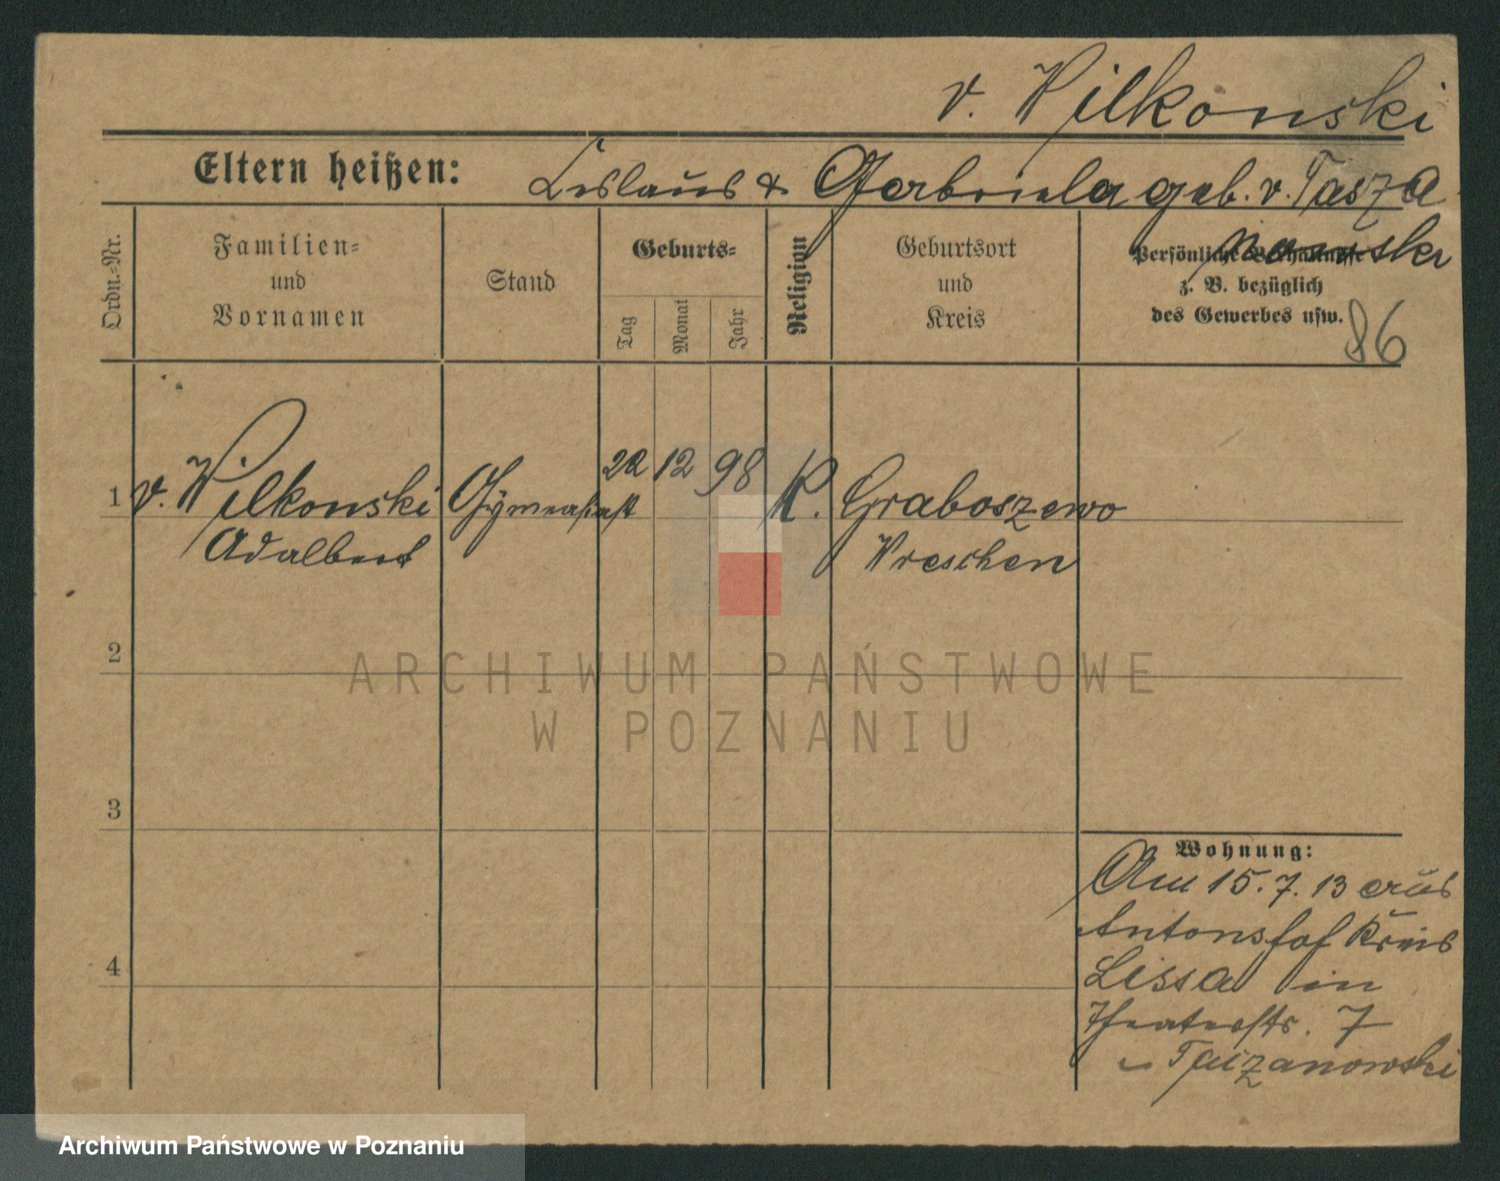 v. Wilkoński
Eltern heißen: Leslaus & Gabriela geb. v. Tacza
nowski
Ordn.-Nr.
Familien- und Vornamen
Stand
Geburts-
Tag
Monat
Jahr
Religion
Geburtsort und Kreis
Persönliche Verhältnisse
z. B. bezüglich
des Gewerbes usw.
86
1 v. Wilkonski Gymnasiast 22 12 98 K. Graboszewo
Adalbert Wreschen
2
3
4
Wohnung:
Am 15.7.13 aus
Antonshof Kreis
Lissa in
Theaterstr. 7
Taczanowski
ARCHIWUM PAŃSTWOWE
W POZNANIU
Archiwum Państwowe w Poznaniu